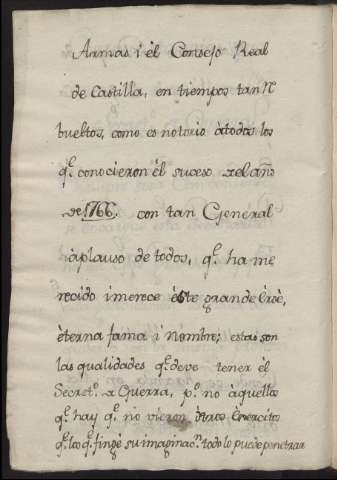 Armas i èl Consejo Real
de Castilla, en tiempos tan Rͤ
bueltos, como es notorio àtodos los
q.ͤ conocieron èl suceso del año
de 1766, con tan General
àplauso de todos, q.ͤ ha me
recido imerece èste grande Eròe,
èterna fama i nombre; estas son
las qualidades q.ͤ deve tener èl
Secret.º a Guerra, p.ͤ no àquellos
q.ͤ hay q.ͤ no vieron otros Exercitos
q.ͤ los q.ͤ finge su imaginac.ⁿ todo lo puede penetrar